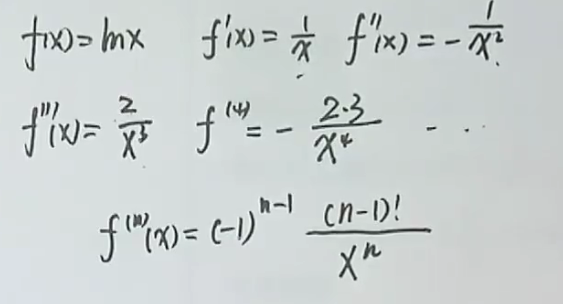 f(x) = lnx f'(x) = 1/x f''(x) = - 1/x²
f'''(x) = 2/x³ f⁽⁴⁾ = - 2·3/x⁴ - ··
f⁽ⁿ⁾(x) = (-1)ⁿ⁻¹ (n-1)!/xⁿ